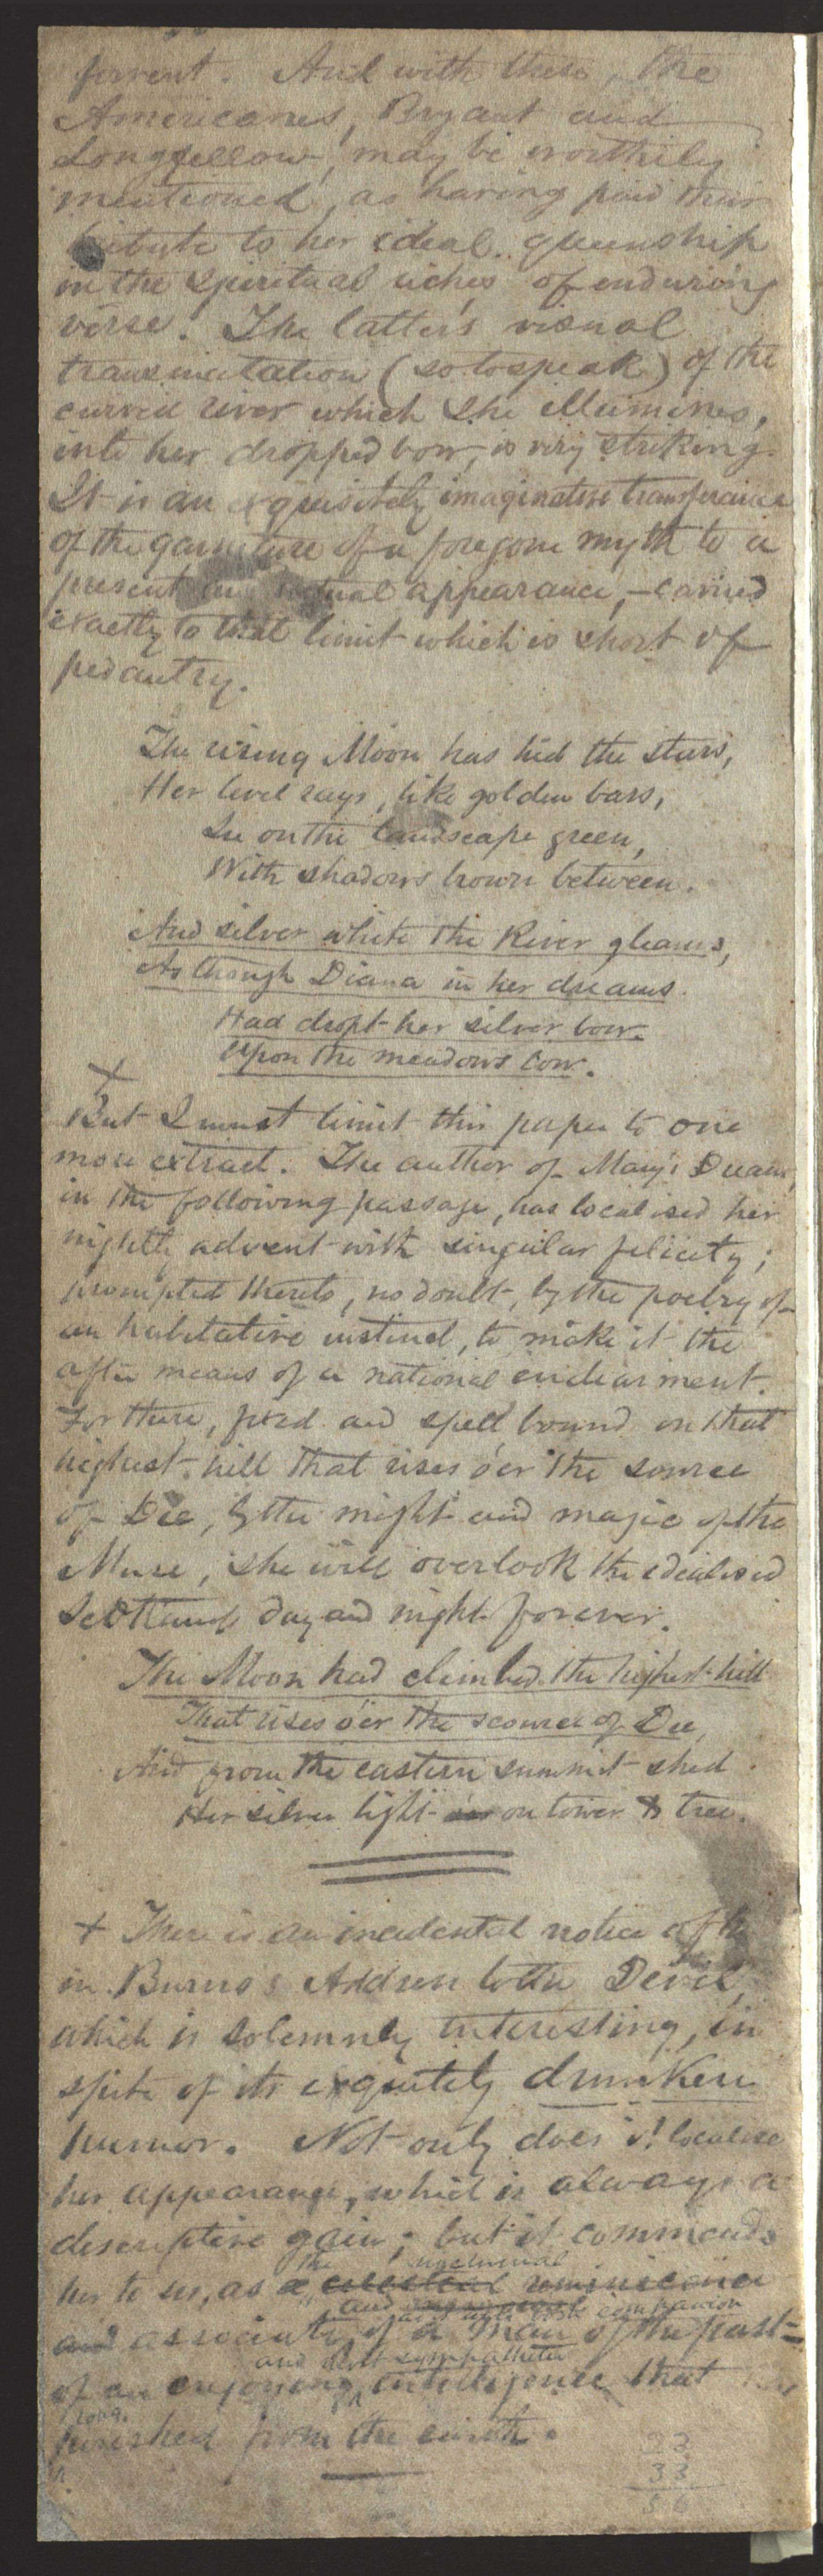 fervent. And with these, the
Americans, Bryant and
Longfellow, may be worthily
mentioned, as having paid their
tribute to her ideal queenship
in the spiritual riches of enduring
verse. The latter's visual
transmutation (so to speak) of the
curved river which she illumines,
into her dropped bow, is very striking.
It is an exquisitely imaginative transferance
of the garniture of a foregone myth to a
present and actual appearance,—carried
exactly to that limit which is short of
pedantry.
The rising Moon has hid the stars,
Her level rays, like golden bars,
Lie on the landscape green,
With shadows brown between.
And silver white the River gleams,
As though Diana in her dreams
Had dropt her silver bow
Upon the meadows low.
+
But I must limit this paper to one
more extract. The author of Mary's Dream,
in the following passage, has localised her
nightly advent with singular felicity;
prompted thereto, no doubt, by the poetry of
an habitative instinct, to make it the
after means of a national endearment.
For there, and spell bound on that
highest hill that rises o'er the source
of Dee, by the might and magic of the
Muse, she will overlook the idealised
Scotland day and night forever.
The Moon had climbed the highest hill
That rises o'er the source of Dee,
And from the eastern summit shed
Her silver light on tower & tree.
+ There is an incidental notice of her
in Burns's Address to the Devil,
which is solemnly interesting, in
spite of its exquisitely drunken
humor. Not only does it localise
her appearance, which is always a
descriptive gain; but it commends
the nocturnal
her to us, as a celestial reminicence
and companion
and associate of a man of the past—
and sympathetic
of an enjoying intelligence that
long
perished from the earth.
33